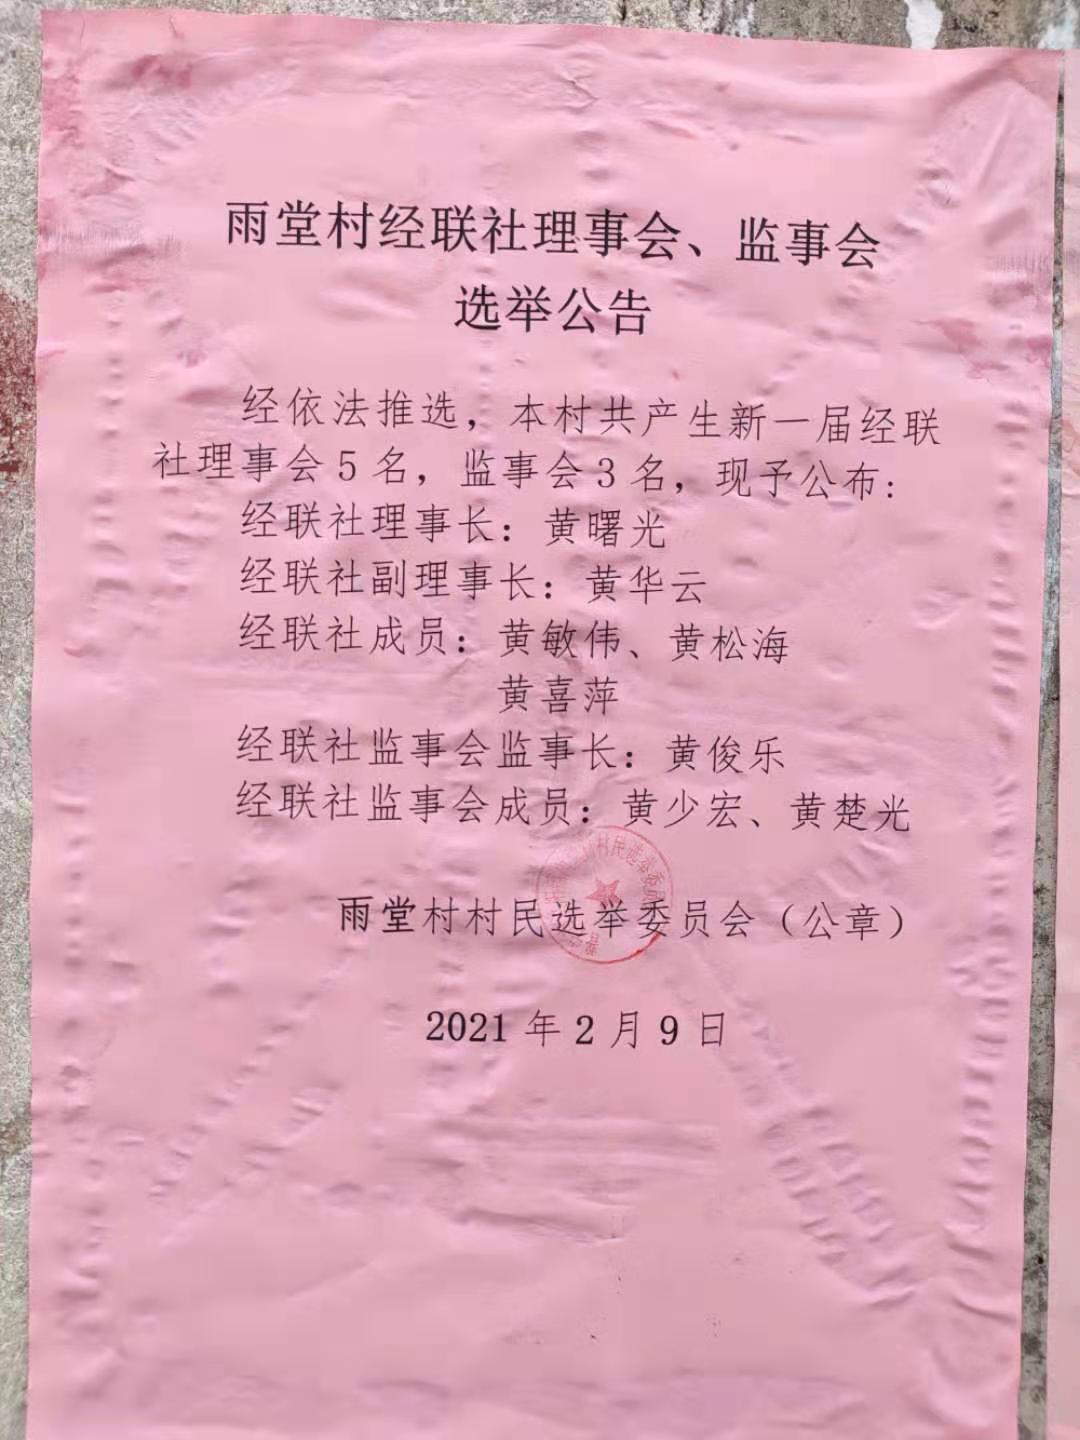 雨堂村经联社理事会、监事会
选举公告
经依法推选，本村共产生新一届经联
社理事会5名，监事会3名，现予公布：
经联社理事长：黄曙光
经联社副理事长：黄华云
经联社成员：黄敏伟、黄松海
黄喜萍
经联社监事会监事长：黄俊乐
经联社监事会成员：黄少宏、黄楚光
村民选举委员会
雨堂村村民选举委员会（公章）
2021年2月9日